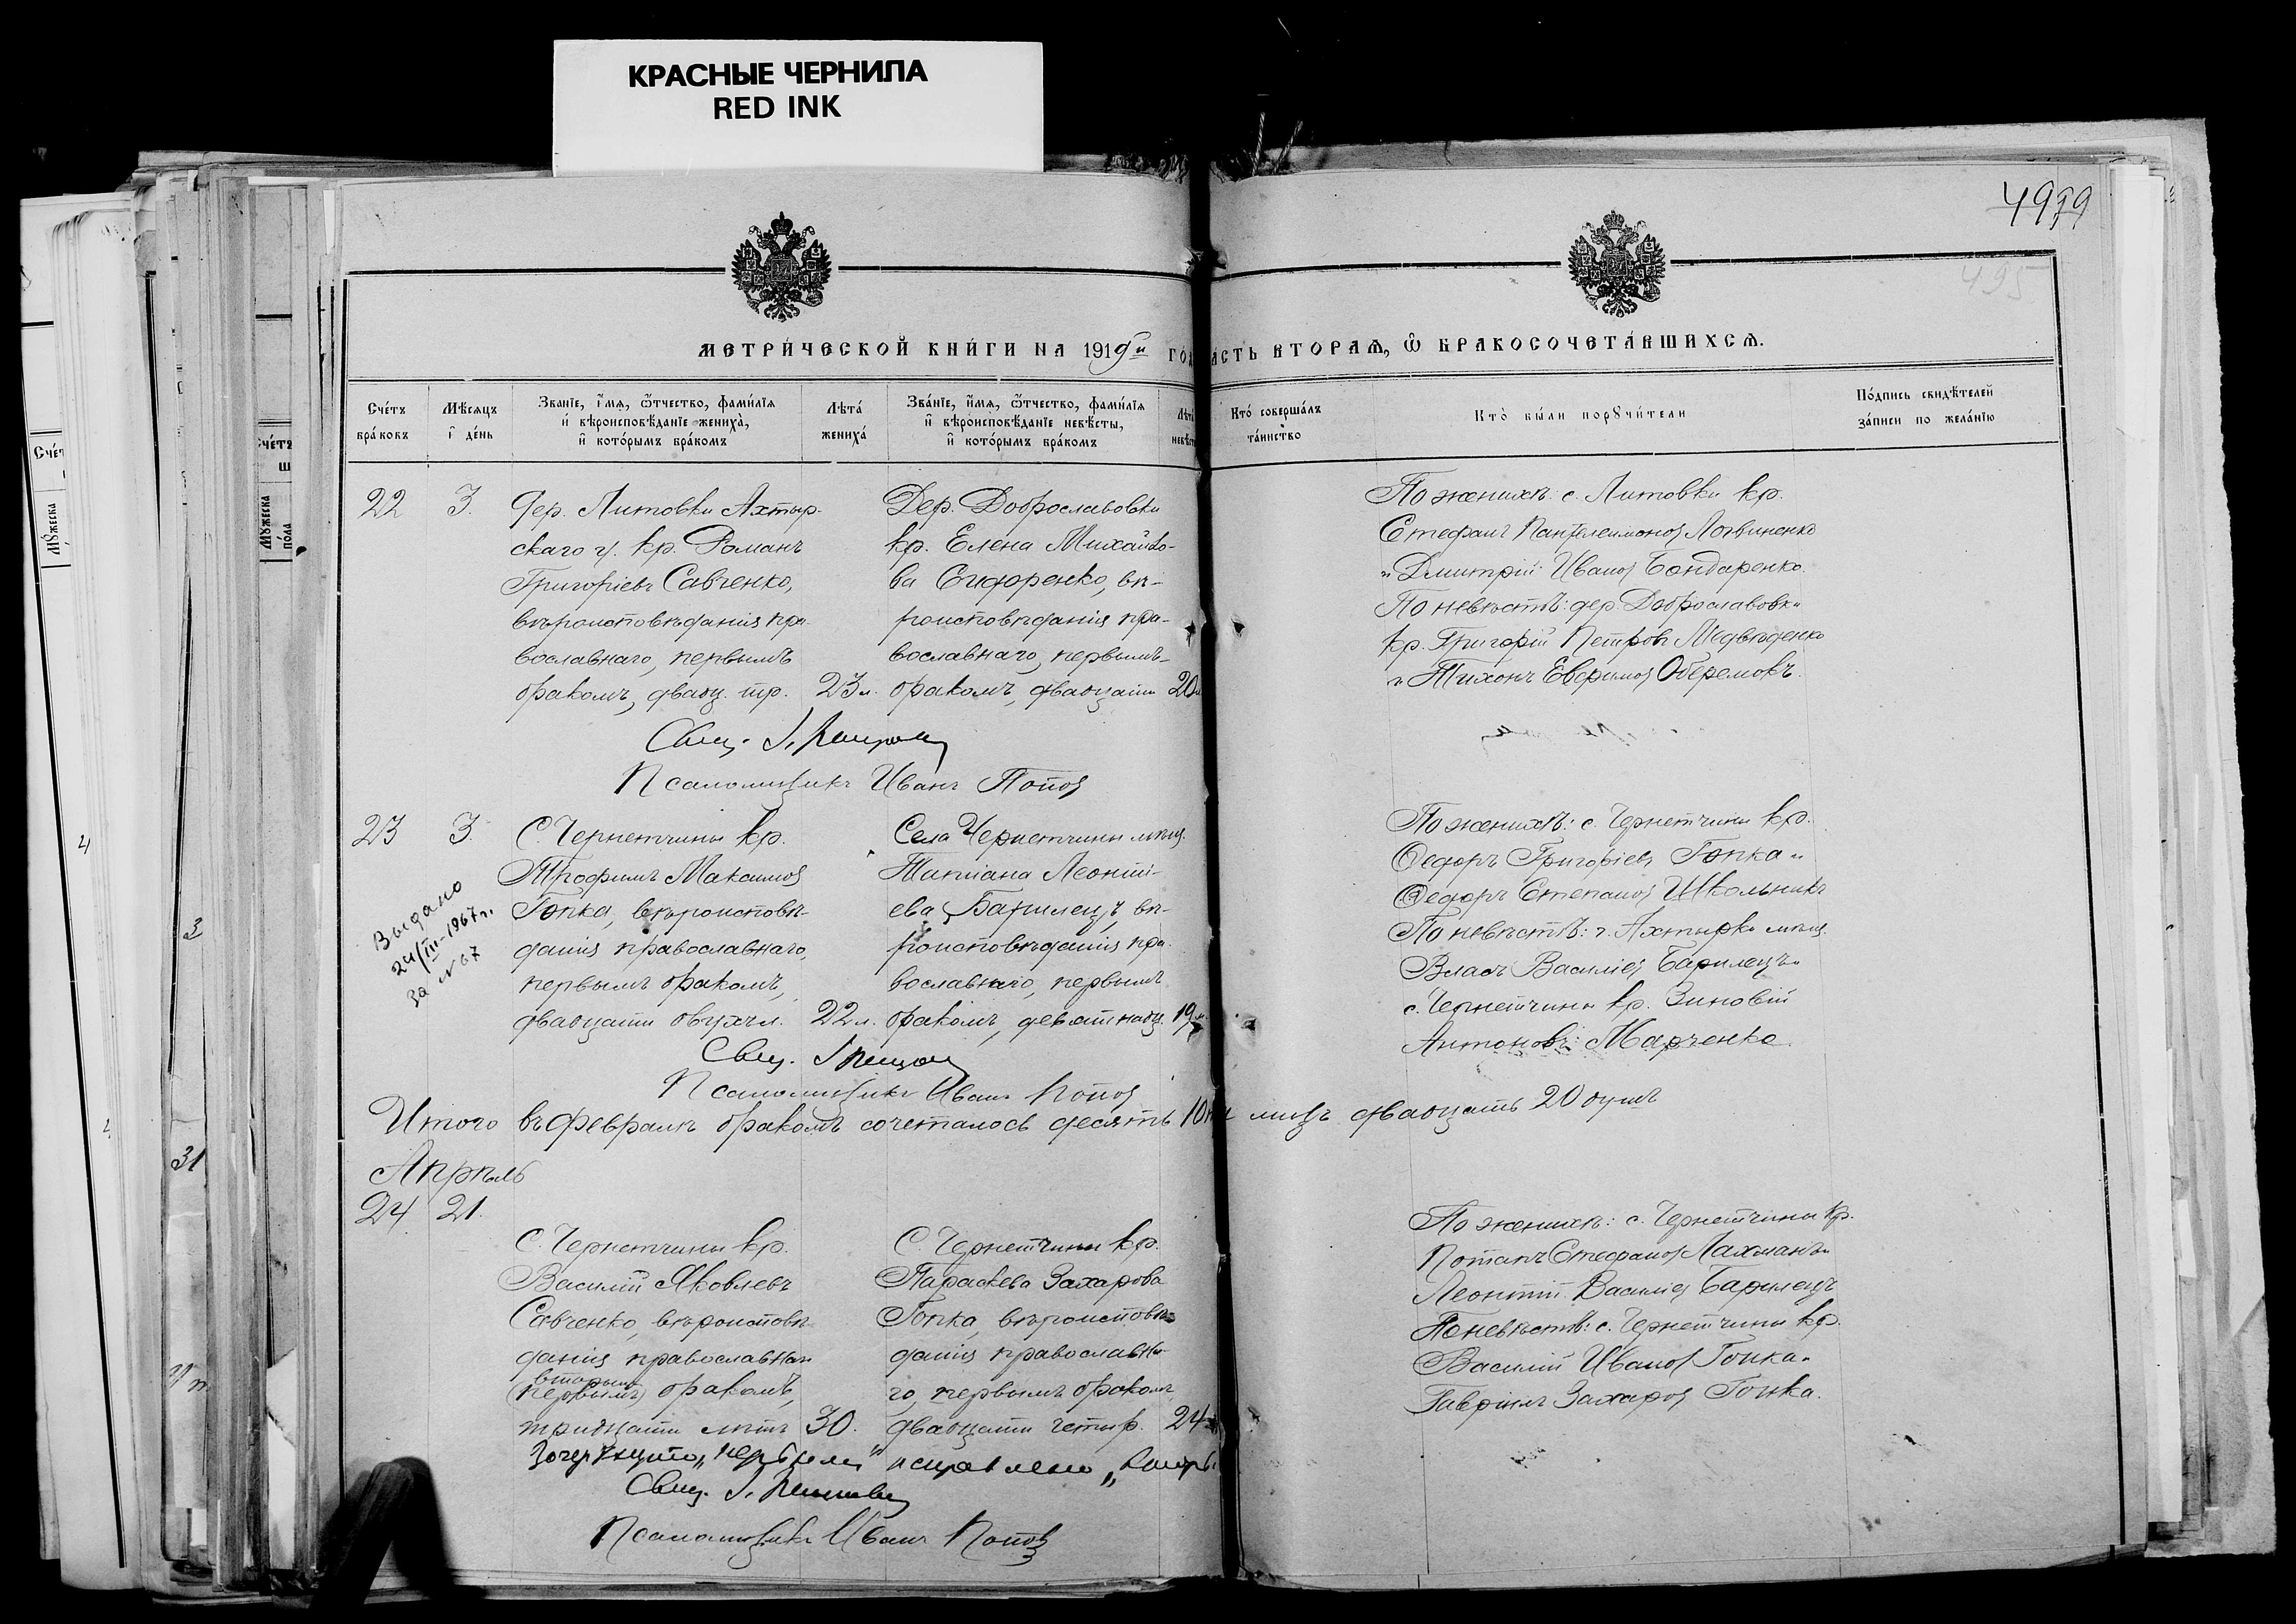 КРАСНЫЕ ЧЕРНИЛА
RED INK
4999
495
МЕТРИ́ЧЕСКОЙ КНИ́ГИ НА 1919й ГО́Д
А́СТЬ ВТОРАѦ, Ѽ БРАКОСОЧЕТА́ВШИХСѦ.
Сче́тъ бра́ковъ
Мѣсяцъ и҆ де́нь
Зва́нїе, и҆́мѧ, ѻ҆́тчество, фами́лїѧ и҆ вѣроисповѣ́данїе жениха̀, и҆ кото́рымъ бра́комъ
Лѣта́ жениха́
Зва́нїе, и҆́мѧ, ѻ҆́тчество, фами́лїѧ и҆ вѣроисповѣ́данїе невѣ́сты, и҆ кото́рымъ бра́комъ
Лѣта́ невѣ́ст
Кто̀ соверша́лъ та́инство
Кто̀ бы́ли порꙋчи́тели
По́дпись свидѣ́телей за́писи по жела́нїю
22 3.
Дер. Литовки Ахтыр-
скаго у. кр. Романъ
Григоріевъ Савченко,
вѣроисповѣданія пра-
вославнаго, первымъ
бракомъ, двадц. тр. 23 л.
Дер. Доброславовки
кр. Елена Михайло-
ва Сидоренко, вѣ-
роисповѣданія пра-
вославнаго, первымъ
бракомъ, двадцати 20
По женихѣ: с. Литовки кр.
Стефанъ Пантелеимонов Логвиненко
и Дмитрій Иванов Бондаренко.
По невѣстѣ: дер. Доброславовки
кр. Григорій Петровъ Медвѣденко
и Тихонъ Евфимов Оберемокъ.
Свящ. І.
Псаломщикъ Иванъ Попов
23 3.
С. Чернетчины кр.
Трофимъ Максимов
Гопка, вѣроисповѣ-
данія православнаго,
первымъ бракомъ,
двадцати двухъ л. 22 л.
Села Чернетчины мѣщ.
Татіана Леонті-
ева Барилецъ, вѣ-
роисповѣданія пра-
вославнаго, первымъ
бракомъ, девятнадц. 19 л.
По женихѣ: с. Чернетчины кр.
Ѳедоръ Григоріев Гопка и
Ѳедоръ Степанов Школьникъ
По невѣстѣ: г. Ахтырки мѣщ.
Власъ Василіев Барилецъ и
с. Чернетчины кр. Зиновій
Антоновъ Марченко.
Выдано
24/III-1967 г.
За № 67
Свящ. І.
Псаломщикъ Иванъ Попов
Итого въ февралѣ бракомъ сочеталось десять 10 лицъ двадцать 20 душъ
Апрѣль
24 21.
С. Чернетчины кр.
Василій Яковлевъ
Савченко, вѣроисповѣ-
данія православнаго
вторымъ
(первымъ) бракомъ,
тридцати лѣтъ 30.
С. Чернетчины кр.
Параскева Захарова
Гопка, вѣроисповѣ-
данія православна-
го, первымъ бракомъ
двадцати четыр. 24
По женихѣ: с. Чернетчины кр.
Потапъ Стефанов Лахманъ и
Леонтій Василіев Барилецъ
По невѣстѣ: с. Чернетчины кр.
Василій Иванов Гопка и
Гавріилъ Захаров Гопка.
Зачеркнуто „первымъ" исправлено „вторы
Свящ. І.
Псаломщикъ Иванъ Попов
Сче́т
Мꙋ́жеска
4
3
31
Сче́тъ
Мꙋ́жеска по́ла